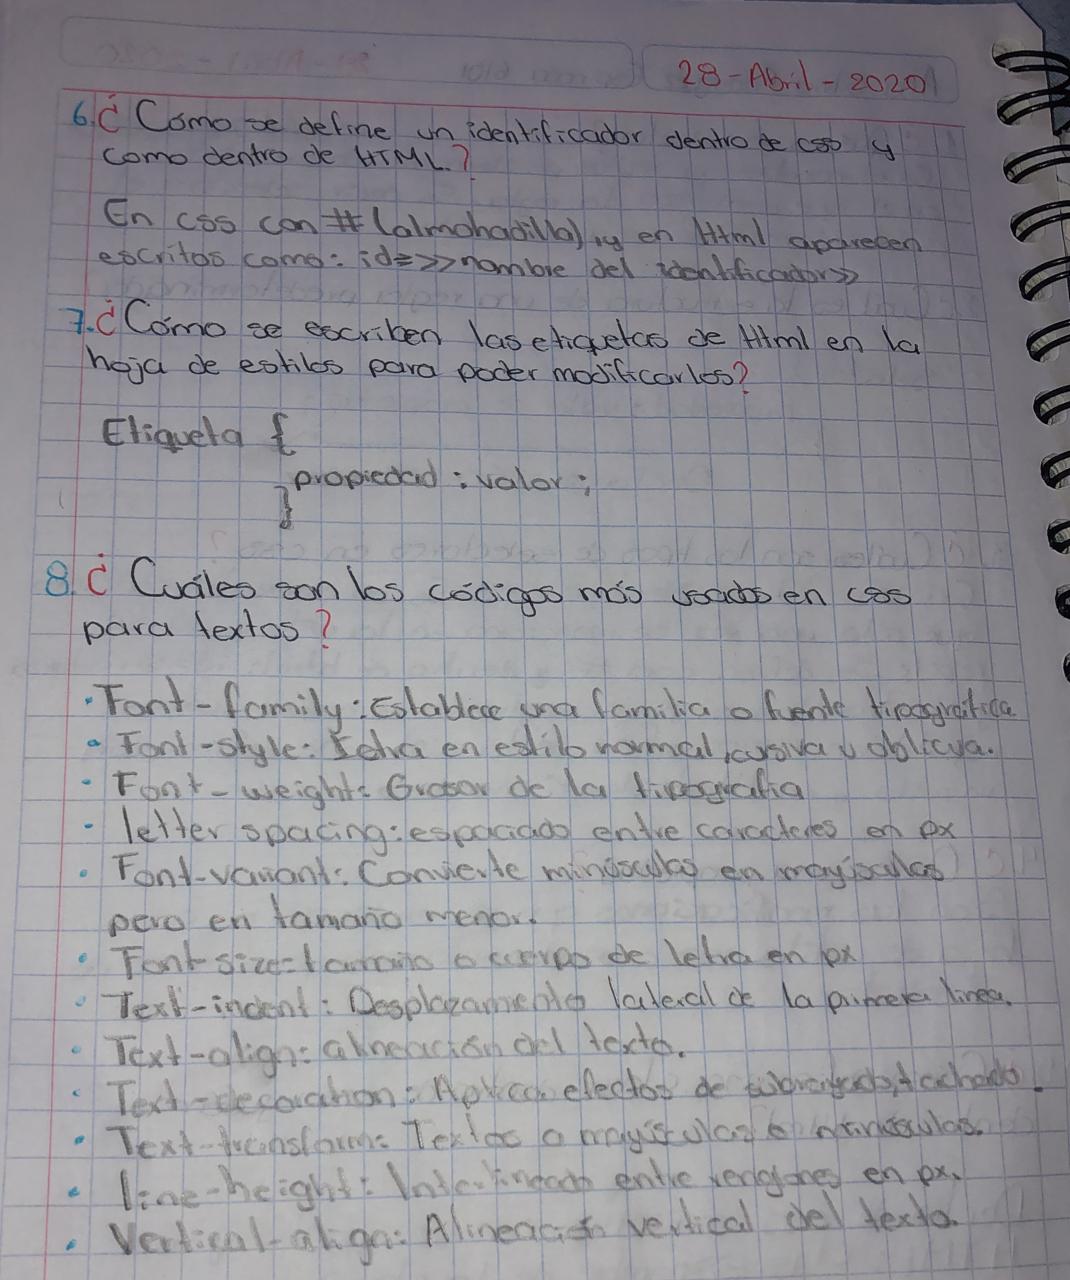 28-Abril-2020
6.¿Cómo se define un identificador dentro de css y
como dentro de HTML?
En css con # (almohadilla), y en Html aparecen
escritos como: id=>>nombre del identificador>>
7.¿Cómo se escriben las etiquetas de Html en la
hoja de estilos para poder modificarlos?
Etiqueta {
propiedad : valor ;
}
8.¿Cuáles son los códigos más usados en css
para textos?
· Font-family: Establece una familia o fuente tipográfica
· Font-style: Letra en estilo normal, cursiva u oblicua.
· Font-weight: Grosor de la tipografía
· letter spacing: espaciado entre caracteres en px
· Font-variant: Convierte minúsculas en mayúsculas
pero en tamaño menor.
· Font size: tamaño o cuerpo de letra en px
· Text-indent: Desplazamiento lateral de la primera línea.
· Text-align: alineación del texto.
· Text-decoration: Aplica efectos de subrayado, tachado.
· Text-transform: Textos a mayúsculas o minúsculas.
· line-height: Interlineado entre renglones en px.
· Vertical-align: Alineación vertical del texto.